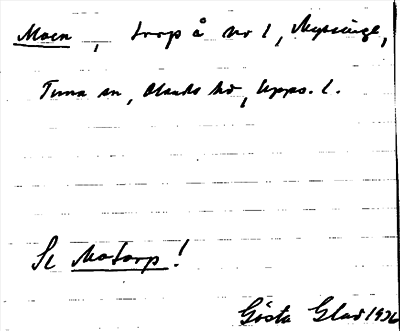 Moen, torp å no 1, Nysinge,
Tuna sn, Olands hd, Upps. l.
Se Motorp!
Gösta Glad 1926